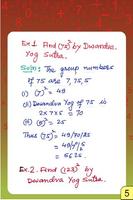 Ex.1 Find (75)² by Dwandva
Yog Sutra.
Soln: The group numbers
of 75 are 7, 75, 5
(i) (7)² = 49
(ii) Dwandva Yog of 75 is
2x7x5 = 70
(iii) (5)² = 25
Thus (75)² = 49/70/25
= 5625.
Ex.2. Find (123)² by
Dwandva Yog Sutra.
5